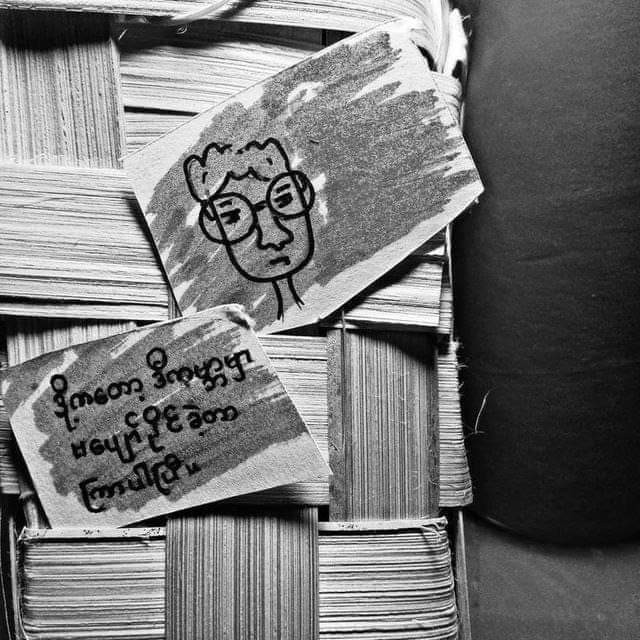 ဒို့ကတော့ ဒီကမ္ဘာမှာ
မပျော်ပိုင်ခဲ့တာ
ကြာပါပြီ။